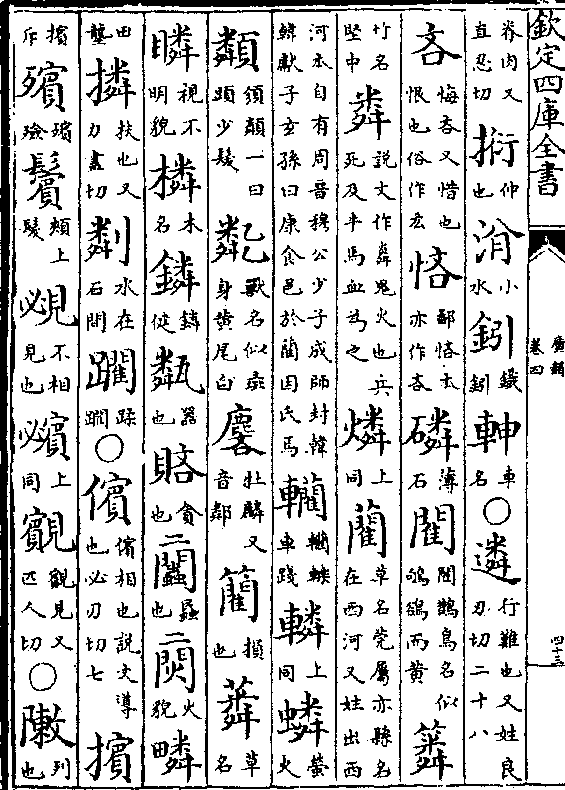 欽定四庫全書
廣韻 卷四
四十三
脊肉又直忍切 伸也 㳙 小水 鈏 鐵鈏 車名 ○ 遴 行難也又姓良刃切二十八
吝 悔吝又惜也恨也俗作 悋 鄙悋本亦作吝 磷 薄石 閵 閵鵲鳥名似鴝鵒而黄
竹名堅中 粦 說文作㷠鬼火也兵死及牛馬血為之 燐 上同 藺 草名莞屬亦縣名在西河又姓出西
河本自有周晉穆公少子成師封韓韓獻子玄孫曰康食邑於藺因氏焉 轥 轥轢車踐 轔 上同 螢火
須顛一曰頭少髮 獸名似彘身黄尾白 麐 牡麟又音鄰 損也 草名
瞵 視不明貌 橉 木名 鏻 鏻健 甐 器也 貪也 二 蟲也 二 火貌 疄
田壟 撛 扶也又力盡切 水在石間 躙 蹂躙 ○ 儐 儐相也說文導也必刃切七 擯
擯斥 殯 殯殮 鬢 頰上髮 覕 不相見也 上同 覿見又匹人切 ○ 敶 列也